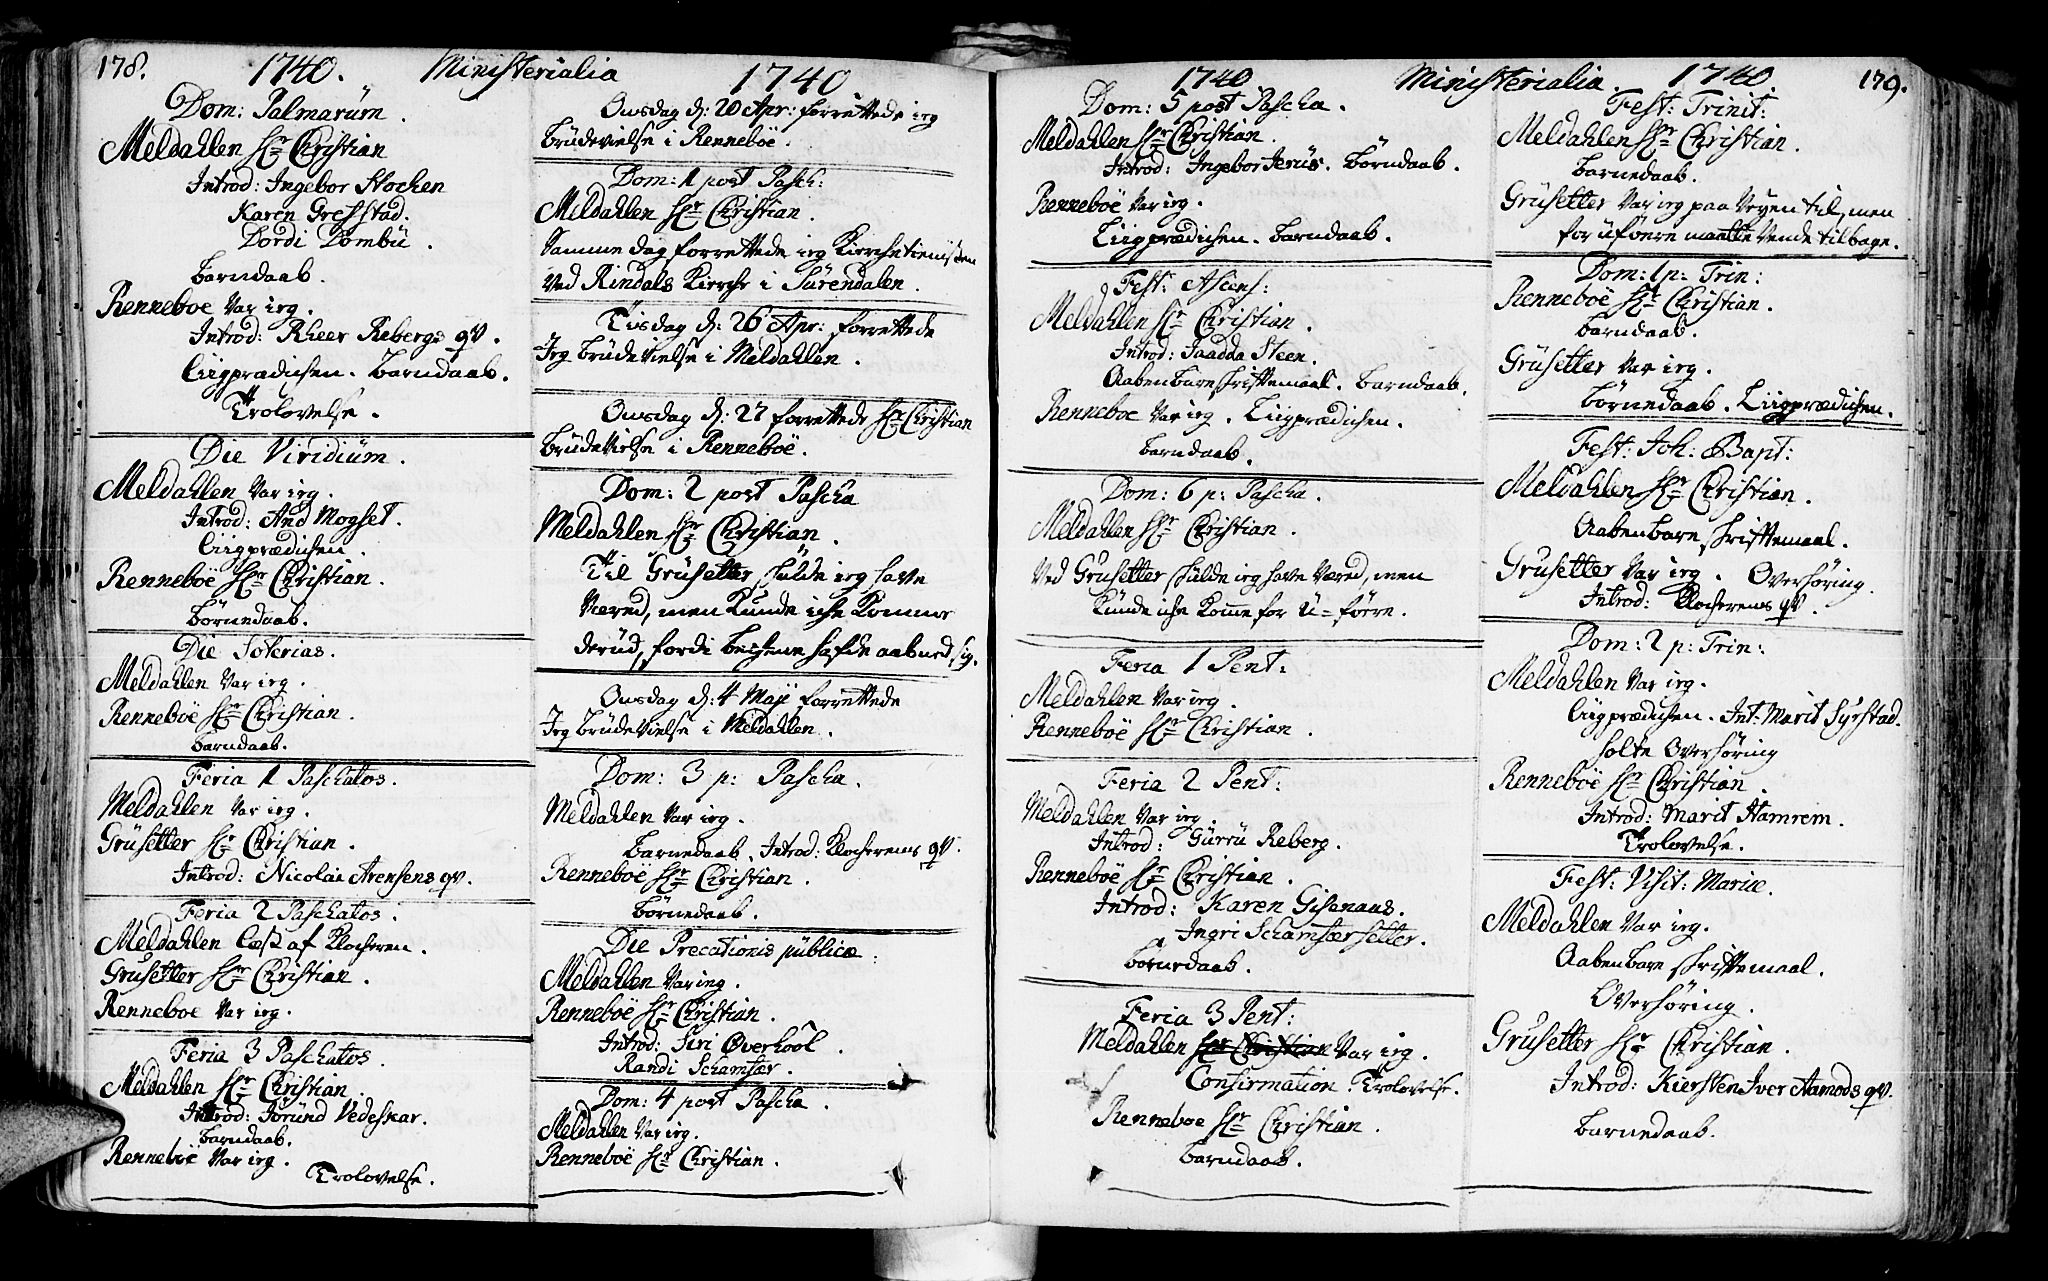 178. 1740. Ministerialia 1740
Dom: Palmarum.
Meldahlen Hr Christian
Introd: Ingebor Stochen
Karen Grefstad.
Dordi Dombu.
barndaab.
Renneboe var ieg.
Introd: Rheer Rebergs qv.
Liigprædichen. Barndaab.
Trolovelse.
Die Viridium.
Meldahlen var ieg.
Introd: And Mogset.
Liigprædichen.
Renneboe Hr Christian.
börnedaab.
Die Soterias.
Meldahlen var ieg.
Renneböe Hr Christian.
barndaab.
Feria 1 Paschatos.
Meldahlen var ieg.
Grüsetter Hr Christian.
Introd: Nicolai Arensens qv.
Feria 2 Paschatos.
Meldahlen læst af Klocheren.
Grüsetter Hr Christian.
Renneboe var ieg.
Feria 3 Paschatos.
Meldahlen Hr Christian
Introd: Jöründ Vedeskar.
barndaab.
Renneböe var ieg.
Trolovelse.
Onsdag d: 20 Apr: forrettede ieg
brüdevielse i Renneböe.
Dom: 1 post Pasch:
Meldahlen Hr Christian.
Samme dag forrettede ieg Kirchetienisten
ved Rindals Kirche i Sürendalen.
Tiisdag d: 26 Apr: forrettede
Jeg brüdevielse i Meldahlen.
Onsdag d: 27 forrettede Hr Christian
brüdevielse i Renneböe.
Dom: 2 post Pascha
Meldahlen Hr Christian.
Til Grüsetter skulde ieg have
været, men Kunde iche Komme
derüd, fordi bechene hafde aabned sig.
Onsdag d: 4 Maji forrettede
Jeg brüdevielse i Meldahlen.
Dom: 3 p: Pascha.
Meldahlen var ieg.
Barnedaab. Introd: Klocherens qv.
Renneböe Hr Christian.
börnedaab.
Die Precationis publicæ.
Meldahlen var ieg.
Renneböe Hr Christian.
Introd: Siri Overhool.
Randi Schamfær.
Dom: 4 post Pascha.
Meldahlen var ieg.
Renneböe Hr Christian.
1740 Ministerialia. 1740. 179.
Dom: 5 post Pascha.
Meldahlen Hr Christian.
Introd: Ingebor Jerüs. börndaab.
Renneböe var ieg.
Liigprædichen. barndaab.
Fest: Ascens:
Meldahlen Hr Christian.
Introd: Jaadda Steen.
Aabenbare skriftemaal. barndaab.
Renneboe var ieg. Liigprædichen.
barndaab.
Dom: 6 p: Pascha.
Meldahlen Hr Christian.
Ved Grüsetter skülde ieg have væred, men
Künde iche Komme for ü=förre.
Feria 1 Pent:
Meldahlen var ieg.
Renneböe Hr Christian.
Feria 2 Pent:
Meldahlen var ieg.
Introd: Gürrü Reberg.
Renneböe Hr Christian.
Introd: Karen Gisenaas.
Ingri Schamfærsetter.
börnedaab.
Feria 3 Pent:
Meldahlen Hr Christian var ieg.
Confirmation. Trolovelse.
Renneboe Hr Christian.
barndaab.
Fest: Trinit:
Meldahlen Hr Christian.
barnedaab.
Grüsetter var ieg paa veyen til, men
for üföere maatte vende tilbage.
Dom: 1 p: Trin:
Renneböe Hr Christian.
barndaab.
Grüsetter var ieg.
börnedaab. Liigprædichen.
Fest: Joh: Bapt:
Meldahlen Hr Christian.
Aabenbare skriftemaal.
Grusetter var ieg. Overhøring.
Introd: Klocherens qv.
Dom: 2 p: Trin:
Meldahlen var ieg.
Liigprædichen. Int: Marit Syrstad.
holte Overhøring
Renneböe Hr Christian.
Introd: Marit Hamrem.
Trolovelse.
Fest: Visit: Mariæ.
Meldahlen var ieg.
Aabenbare skriftemaal.
Overhøring.
Grüsetter Hr Christian.
Introd: Kiersten Iver Aamods qv.
barnedaab.